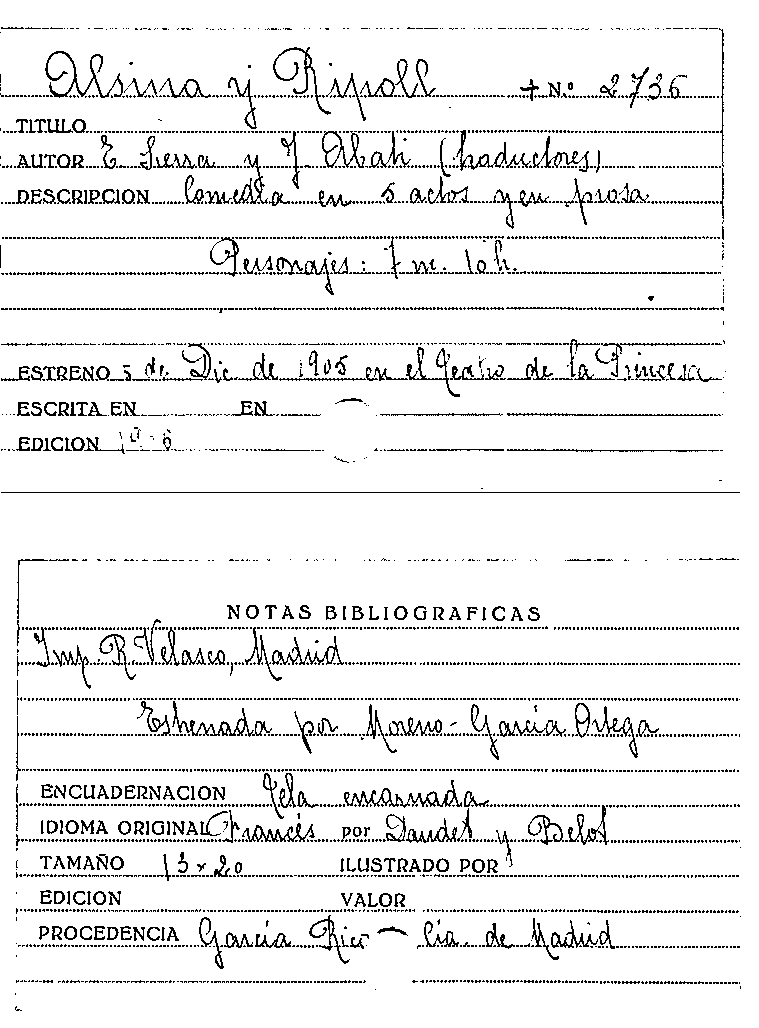 Alsina y Ripoll + N.º 2736
TITULO
AUTOR E Sierra y J Abati (traductores)
DESCRIPCION Comedia en 5 actos y en prosa
Personajes: 7 m. 10 h.
ESTRENO 5 de Dic de 1905 en el Teatro de la Princesa
ESCRITA EN EN
EDICION
NOTAS BIBLIOGRAFICAS
Imp. R. Velasco, Madrid
Estrenada por Moreno - García Ortega
ENCUADERNACION Tela encarnada
IDIOMA ORIGINAL Francés por Daudet y Belot
TAMAÑO 13 x 20 ILUSTRADO POR
EDICION VALOR
PROCEDENCIA García Rico - Cía. de Madrid